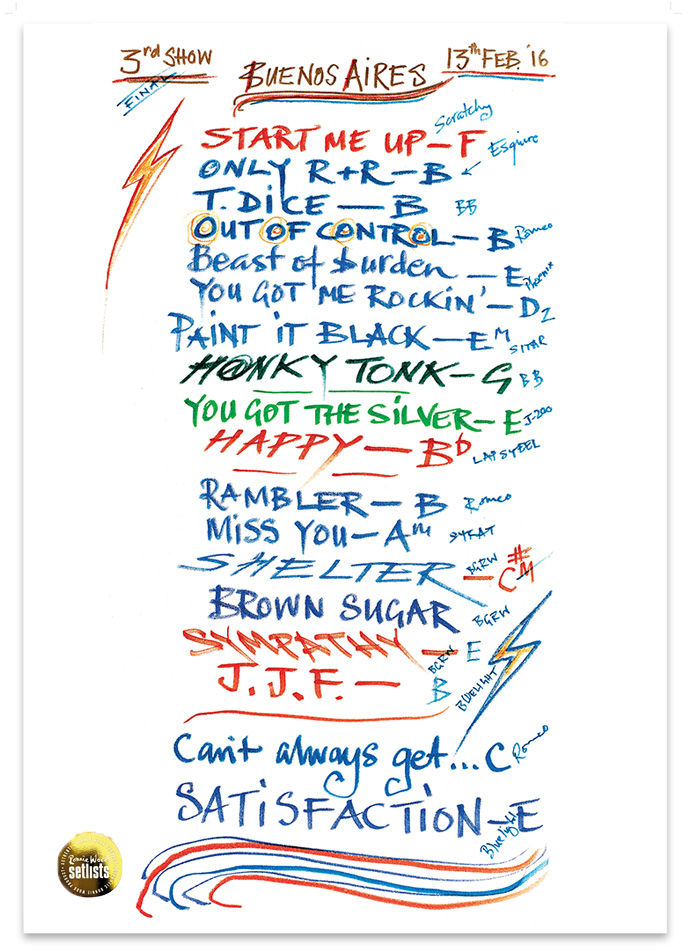 3rd SHOW
FINAL
BUENOS AIRES
13th FEB. '16
Scratchy
START ME UP – F
Esquire
ONLY R+R – B
T. DiCE – B BB
OUT OF CONTROL – B Romeo
Beast of Burden – E
YOU GOT ME ROCKiN' – D Z
PAiNT iT BLACK – Em SITAR
HONKY TONK – G BB
YOU GOT THE SiLVER – E J-200
HAPPY – Bb LAPSYDEL
RAMBLER – B Romeo
MiSS YOU – Am SYKAT
SHELTER – C#M BGRW
BROWN SUGAR BGRW
SYMPATHY – E BGRW
J.J.F. – B BLUELIGHT
Can't always get... C Romeo
SATiSFACTiON – E Bluelight
Ronnie Wood
setlists